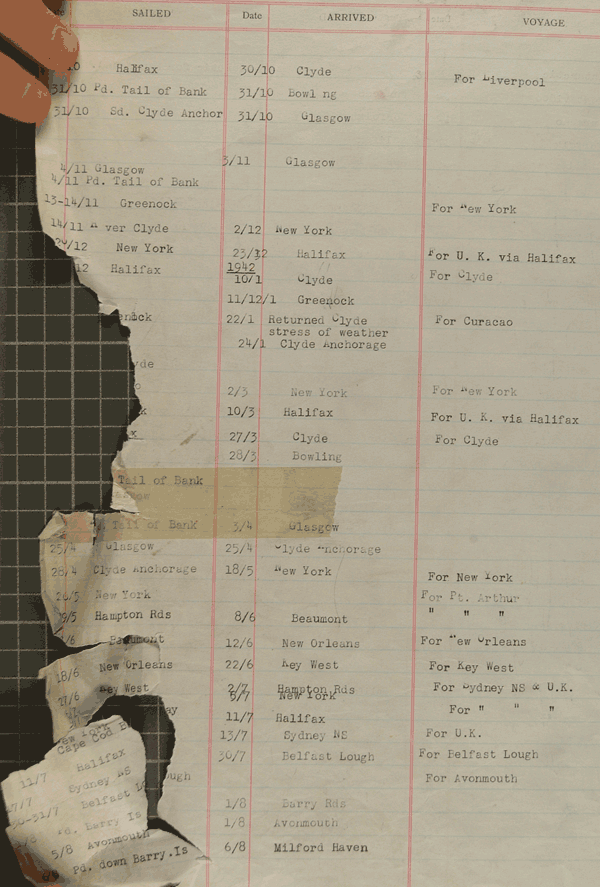 SAILED Date ARRIVED VOYAGE
10 Halifax 30/10 Clyde For Liverpool
31/10 Pd. Tail of Bank 31/10 Bowl ng
31/10 Sd. Clyde Anchor 31/10 Glasgow
3/11 Glasgow
4/11 Glasgow
4/11 Pd. Tail of Bank
13-14/11 Greenock For New York
14/11 ver Clyde 2/12 New York
/12 New York 23/12 Halifax For U. K. via Halifax
12 Halifax 1942
10/1 Clyde For Clyde
11/12/1 Greenock
enock 22/1 Returned Clyde For Curacao
stress of weather
24/1 Clyde Anchorage
yde
2/3 New York For New York
k 10/3 Halifax For U. K. via Halifax
27/3 Clyde For Clyde
28/3 Bowling
Tail of Bank
Tail of Bank 3/4 Glasgow
25/4 Glasgow 25/4 Clyde Anchorage
26/4 Clyde Anchorage 18/5 New York For New York
20/5 New York For Pt. Arthur
9/5 Hampton Rds 8/6 Beaumont " " "
/6 Beaumont 12/6 New Orleans For New Orleans
18/6 New Orleans 22/6 Key West For Key West
17/6 Key West 2/7 Hampton Rds For Sydney NS & U.K.
ay 5/7 New York For " " "
ew York 11/7 Halifax
Cape Cod 13/7 Sydney NS For U.K.
11/7 Halifax 30/7 Belfast Lough For Belfast Lough
17/7 Sydney NS ough For Avonmouth
30-31/7 Belfast 1/8 Barry Rds
Pd. Barry Is 1/8 Avonmouth
5/8 Avonmouth 6/8 Milford Haven
Pd. down Barry.Is